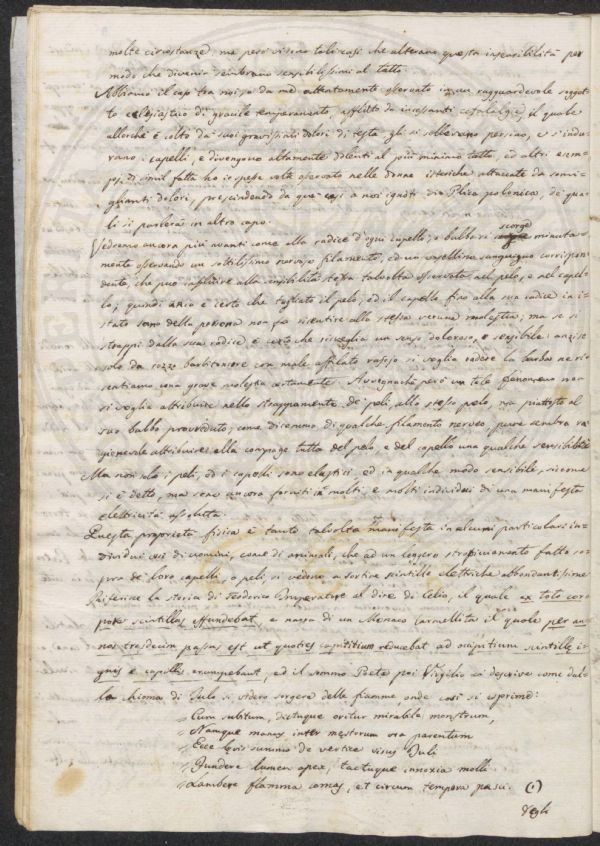 molte circostanze, ma però visono tali casi che alterano questa insensibilità per
modo che divenir sembrano sensibilissimi al tatto.
Abbiamo il caso tra noi, ed da me attentamente osservato in un ragguardevole sogget-
to eclesiastico di gracile temperamento, afflitto da incessanti cefalalgie, il quale
allorchè è colto da suoi gravissimi dolori di testa gli si sollevano persino, e s'indu-
rano i capelli, e divengono altamente dolenti al più minimo tatto, ed altri esem-
pj di simil fatta ho io spesse volte osservato nelle donne isteriche attaccate da somi-
glianti dolori, prescindendo da que casi a noi ignoti dia Plica polonica, de qua-
li si parlerà in altro capo.
Vedremo ancora più avanti come alla radice d'ogni capello, o bulbo si scorge minuta-
mente osservando un sottilissimo nervoso filamento, ed un vasellino sanguigno corrispon-
dente, che può influire alla sensibilità stessa talvolta osservata nel pelo, e nel capel-
lo; quindi è certo che tagliato il pelo, ed il capello fino alla sua radice in i-
stato sano della persona non fa risentire alla stessa veruna molestia; ma se si
strappi dalla sua radice è certo che risveglia un senso doloroso, e sensibile: anzi se
solo da rozzo barbitonsore con male affilato rasojo si voglia radere la barba ne ri-
sentiamo una grave molestia certamente. Avvegnachè però un tale fenomeno non
si voglia attribuire nello strappamento de' peli allo stesso pelo, ma piuttosto al
suo bulbo provveduto, come diremmo di qualche filamento nerveo, pure sembra ra-
gionevole attribuire alla compage tutta del pelo, e del capello una qualche sensibilità
Ma non solo i peli, ed i capelli sono elastici, ed in qualche modo sensibile, siccome
si è detto, ma sono ancora forniti in molti, e molti individui di una manifesta
elettricità assoluta.
Questa proprietà fisica è tanto talvolta manifesta in alcuni particolari in-
dividui sui di uomini, come di animali, che ad un leggero stropicciamento fatto so-
pra de' loro capelli, o peli, si vedono a sortire scintille elettriche abbondantissime
Riferisce la storia di Teodorico Imperatore al dire di Celio, il quale ex toto cor-
pore scintillas effundebat, e narra di un Monaco Carmelitta il quale per an-
nos tresdecim passus est ut quoties capititium reducebat ad occipitium scintille i-
gnis e capillis erumpebant, ed il sommo Poeta poi Virgilio ci descrive come dal-
la chioma di Julo si videro sorgere delle fiamme, onde così si esprime:
Cum subitum, dictuque oritur mirabile monstrum,
Namque manus, inter mestorum ora parentum
Ecce levis summo de vertice visus Juli
Fundere lumen apex, tactuque innoxia molli
Lambere flamma comas, et circum tempora pasci. (1)
Negli